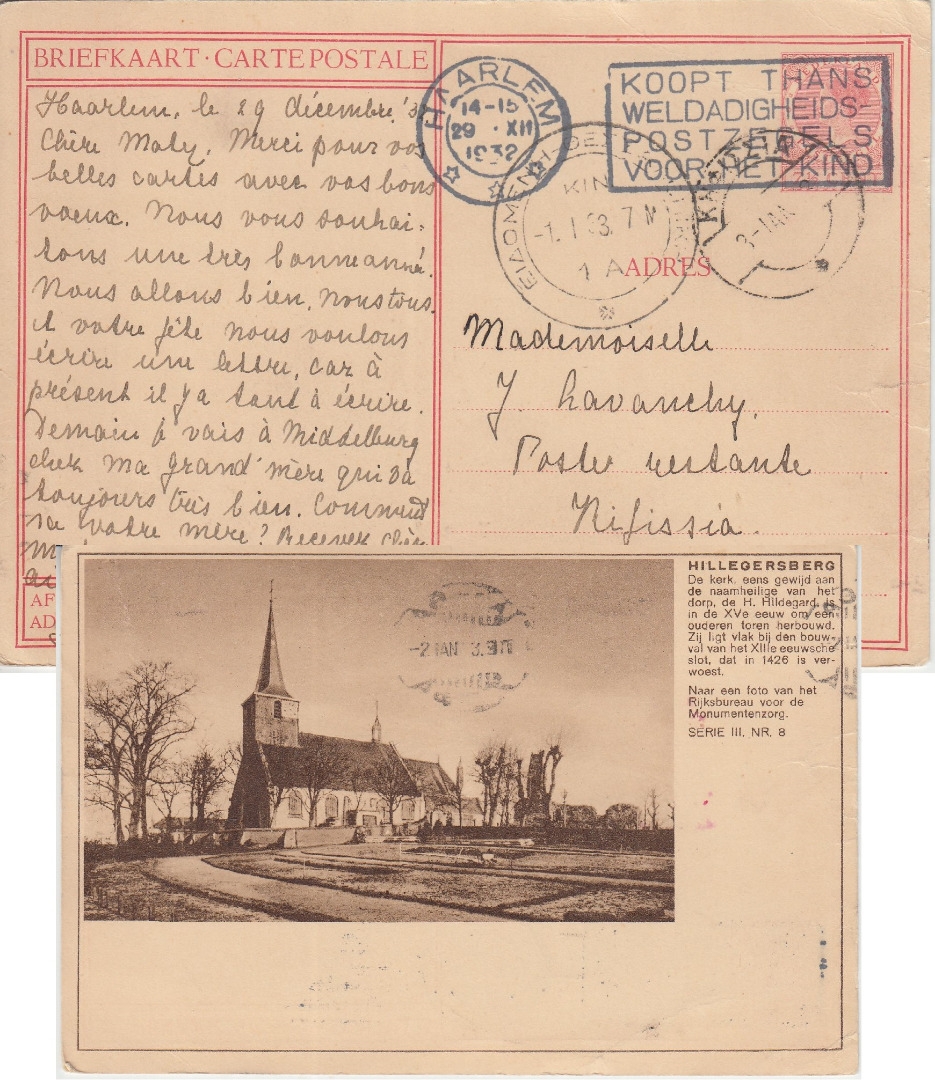 BRIEFKAART · CARTE POSTALE
Haarlem, le 29 décembre '3
Chère Maty. Merci pour vos
belles cartes avec vos bons
voeux. Nous vous souhai-
tons une très bonne année.
Nous allons bien, nous tous,
et votre fête nous voulons
écrire une lettre, car à
présent il y a tant à écrire.
Demain je vais à Middelburg
chez ma grand'mère qui va
toujours très bien. Comment
va votre mère? Recevez
AF
AD
HAARLEM
14-15
29 · XII
1932
KOOPT THANS
WELDADIGHEIDS-
POSTZEGELS
VOOR HET KIND
-1. I 33. 7 M
1 A
3-IAN
ADRES
Mademoiselle
J. Lavanchy,
Poste restante
Kifissia.
-2 IAN 3
HILLEGERSBERG
De kerk, eens gewijd aan
de naamheilige van het
dorp, de H. Hildegard, is
in de XVe eeuw om een
ouderen toren herbouwd.
Zij ligt vlak bij den bouw-
val van het XIIIe eeuwsche
slot, dat in 1426 is ver-
woest.
Naar een foto van het
Rijksbureau voor de
Monumentenzorg.
SERIE III, NR. 8